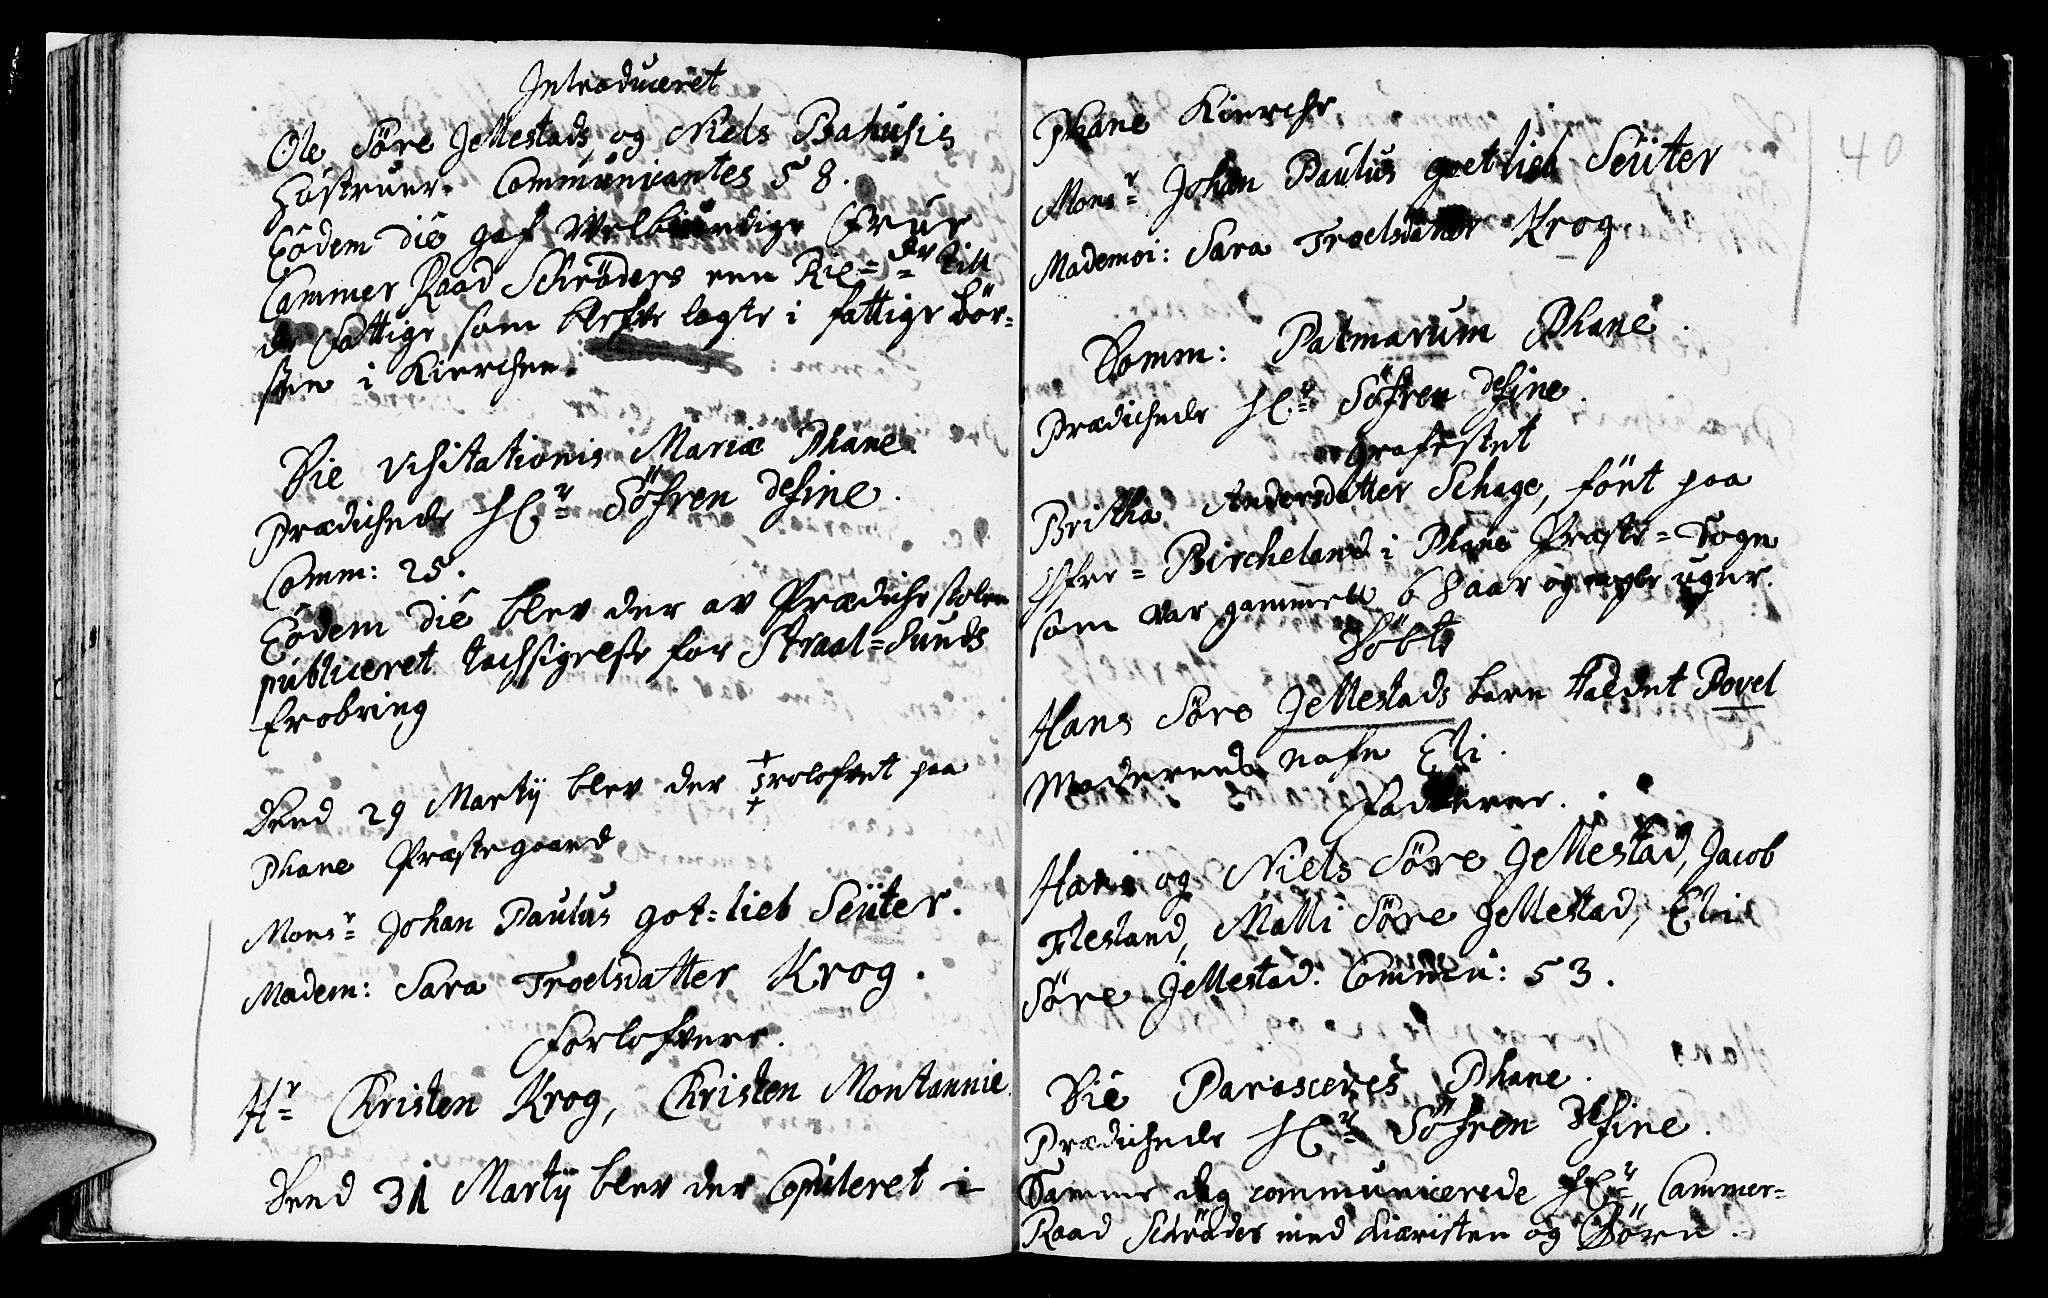 Introduceret
Ole Söre Jellestads og Niels Bahusis
Hustruer. Communicantes 58.
Eodem die gaf Welbiurdige Frue
Cammer Raad Schröders een Rix=dr till
de Fattige som blefve lagte i fattige Bös=
sen i Kierchen.
Die Visitationis Mariæ Phane.
Prædichede Hr Söfren Hesine.
Comm: 25.
Eodem die blev der av Prædichestolen
publiceret tachsigelse for Straal=Sunds
Erobring
Dend 29 Martij blev der Trolofvet paa
Phane Præstegaard
Monsr Johan Paulus Got=lieb Seüter.
Madem: Sara Troelsdatter Krog.
Forlofvere.
Hr Christen Krog, Christen Montannie.
Dend 31 Martij blev der Copuleret i
40
Phane Kierche
Monsr Johan Paulus gotlieb Seüter
Mademoi: Sara Troelsdatter Krog
Domm: Palmarum Phane.
Prædichede Hr Söfren Hesine.
Grafestet
Britha Andersdatter Schage, fört paa
Öfre=Bircheland i Phane Præste=Sogn
som var gammell 68 aar og nogle uger.
Döbt
Hans Söre Jellestads barn kaldet Povel
Moderens nafn Eli.
Fadderer.
Hans og Niels Söre Jellestad, Jacob
Flesland, Malli Söre Jellestad, Eli
Söre Jellestad. Commu: 53.
Die Parasceves Phane.
Prædichede Hr Söfren Hesine.
Samme dag communicerede Hr Cammer=
Raad Schröder med Kiæristen og Börn.